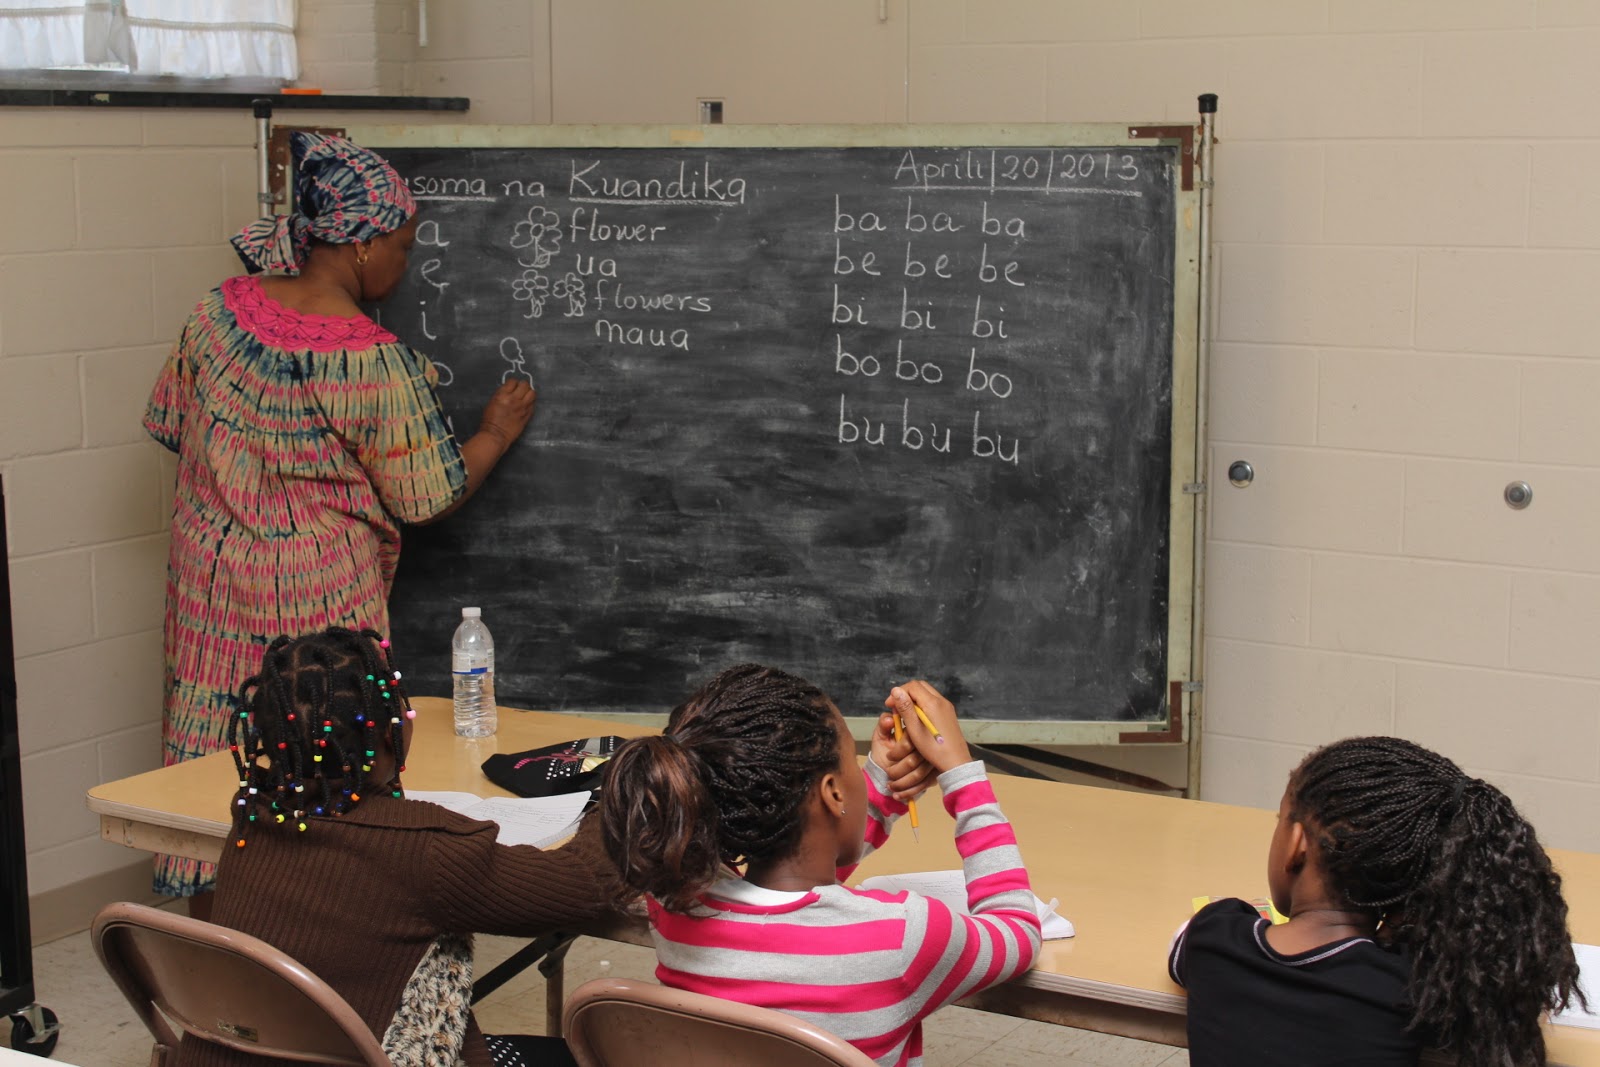 na Kuandika
Aprili/20/2013
a
e
i
o
flower
ua
flowers
maua
ba ba ba
be be be
bi bi bi
bo bo bo
bu bu bu